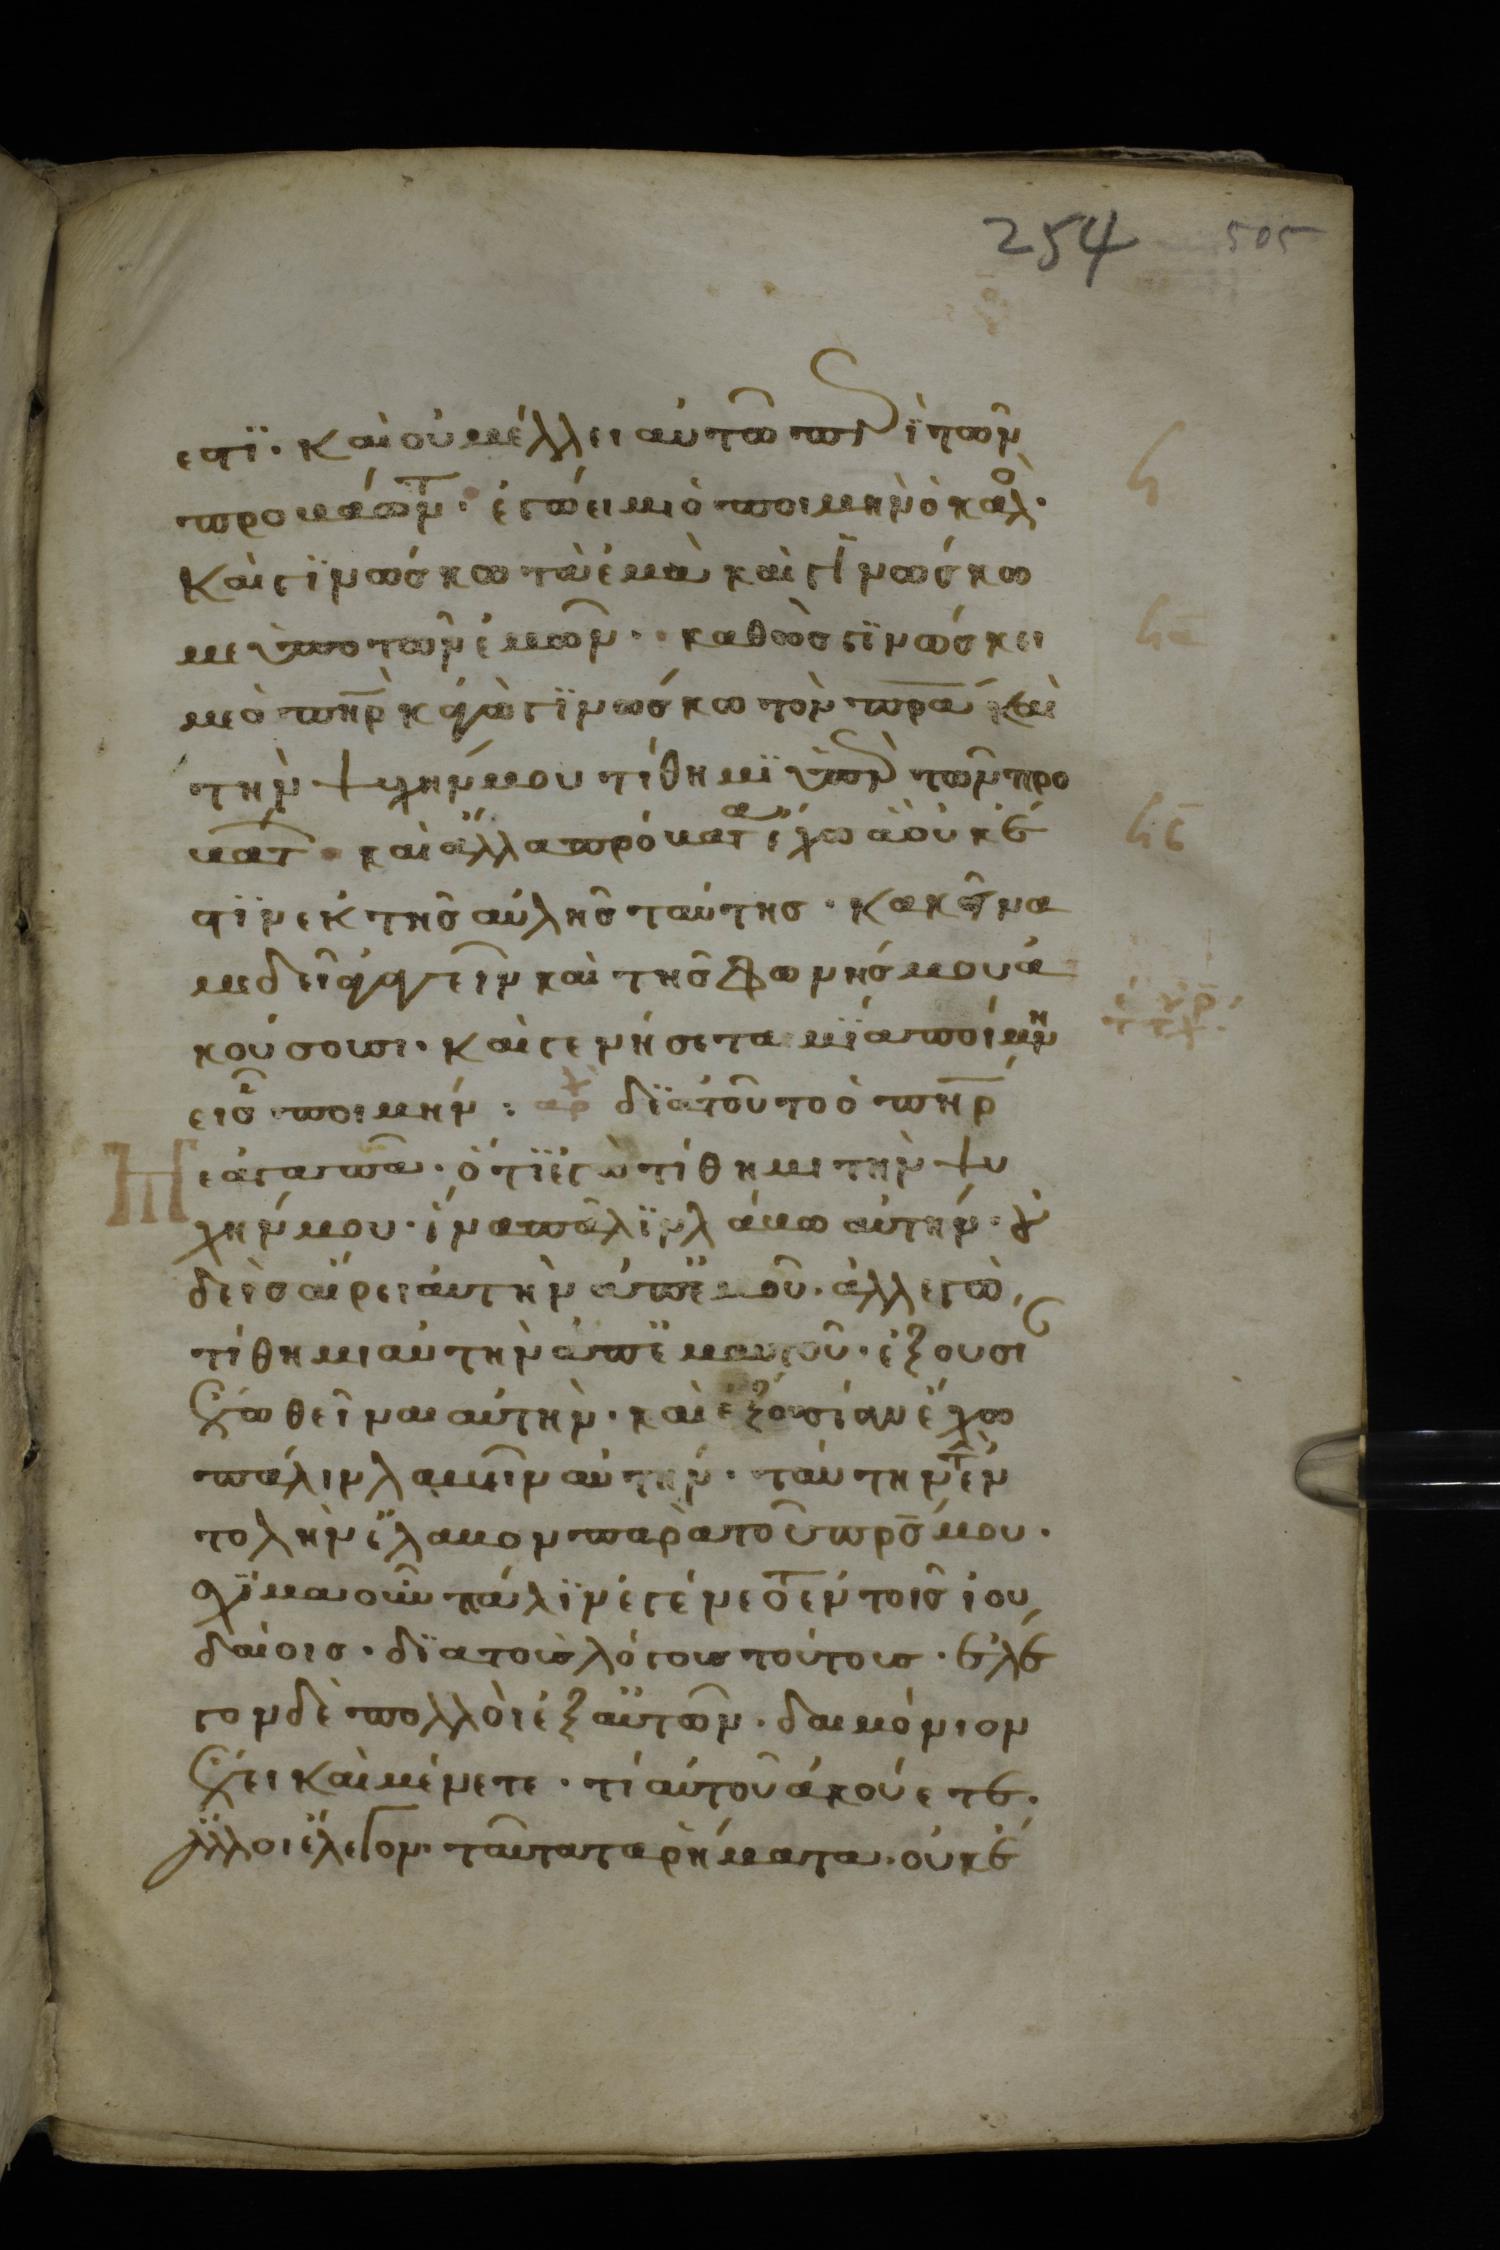 254 505
εστϊ· καὶ οὐ μέλλει αὐτῶ περὶ τῶν
προβάτων· ἐγώ εἰμι ὁ ποιμὴν ὁ καλὸ·
Καὶ γϊνώσκω τὰ ἐμὰ καὶ γϊνώσκο
με ὑπο τῶν ἐμῶν· καθὼς γϊνώσκει
με ὁ πηρ κἀγὼ γϊνώσκω τὸν πρα καὶ
τὴν ψυχήν μου τίθημϊ ὑπὲρ τῶν προ
βάτ· καὶ ἄλλα πρόβατα ἔχω ἃ οὐκ ἔ
στϊν εκ τῆς αὐλῆς ταύτης· κακεῖνα
με δεῖ ἀγαγεῖν καὶ τῆς φωνῆς μου ἀ
κούσουσι· καὶ γενήσεται μϊα ποίμνη
εἷς ποιμήν: αρχ δϊατοῦτο ὁ πηρ
Η
με ἀγαπᾶ· ὅτϊ ἐγὼ τίθημι τὴν ψυ
χήν μου· ἵνα πάλϊν λάβω αὐτήν· οὐ
δεὶς αἴρει αὐτὴν ἀπ ἐμοῦ· ἀλλ εγὼ
τίθημι αὐτὴν ἀπ ἐμαυτοῦ· ἐξουσί
ἔχω θεῖναι αὐτὴν· καὶ ἐξουσίαν ἔχω
πάλιν λαβεῖν αὐτήν· ταύτην τ ἐν
τολὴν ἔλαβον παρὰ τοῦ πρς μου·
σχϊμα οὖν πάλϊν ἐγένετο ἐν τοῖς ἰου
δαίοις· δϊα τοὺς λόγους τούτους· ἔλε
γον δὲ πολλοὶ ἐξ αὐτῶν· δαιμόνιον
ἔχει καὶ μένετε· τί αὐτοῦ ἀκούετε·
Ἄλλοι ἔλεγον· ταῦτα τα ρήματα· οὐκ ἔ